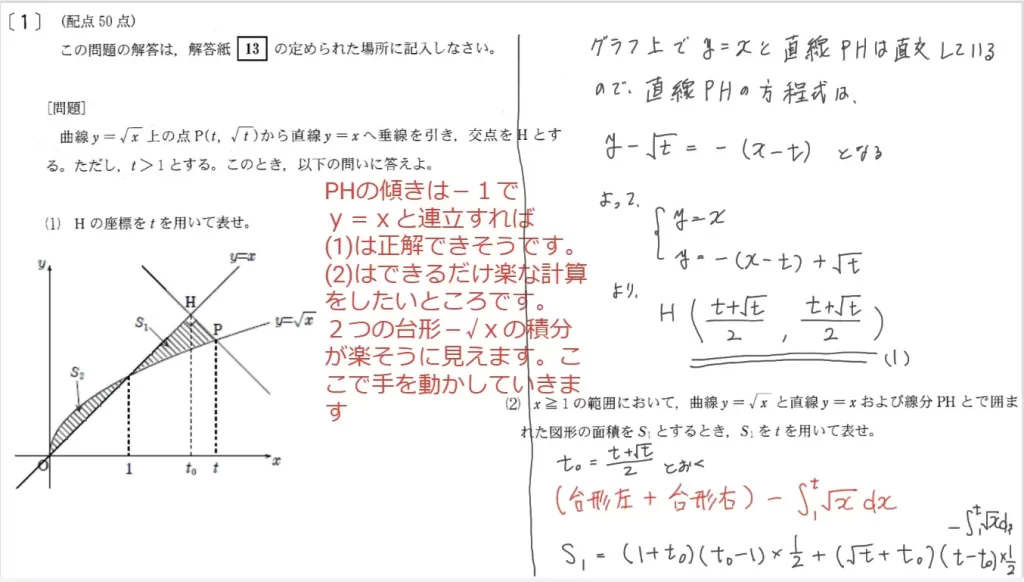 〔1〕 (配点 50 点)
この問題の解答は，解答紙 13 の定められた場所に記入しなさい。
[問題]
曲線 y=√x 上の点 P(t, √t) から直線 y=x へ垂線を引き，交点を H とす
る。ただし，t＞1 とする。このとき，以下の問いに答えよ。
(1) H の座標を t を用いて表せ。
y
y=x
H
S₁
P
y=√x
S₂
O
1
t₀
t
x
PHの傾きは－１で
ｙ＝ｘと連立すれば
(1)は正解できそうです。
(2)はできるだけ楽な計算
をしたいところです。
２つの台形－√ｘの積分
が楽そうに見えます。こ
こで手を動かしていきま
す
グラフ上で y=xと直線PHは直交している
ので、直線PHの方程式は、
y-√t = -(x-t) となる
よって、
{ y=x
y=-(x-t)+√t
より、
H ( (t+√t)/2 , (t+√t)/2 )
(1)
(2) x≧1 の範囲において，曲線 y=√x と直線 y=x および線分 PH とで囲ま
れた図形の面積を S₁ とするとき，S₁ を t を用いて表せ。
t₀ = (t+√t)/2 とおく
(台形左 + 台形右) - ∫₁ᵗ √x dx
-∫₁ᵗ √x dx
S₁ = (1+t₀)(t₀-1)×1/2 + (√t+t₀)(t-t₀)×1/2